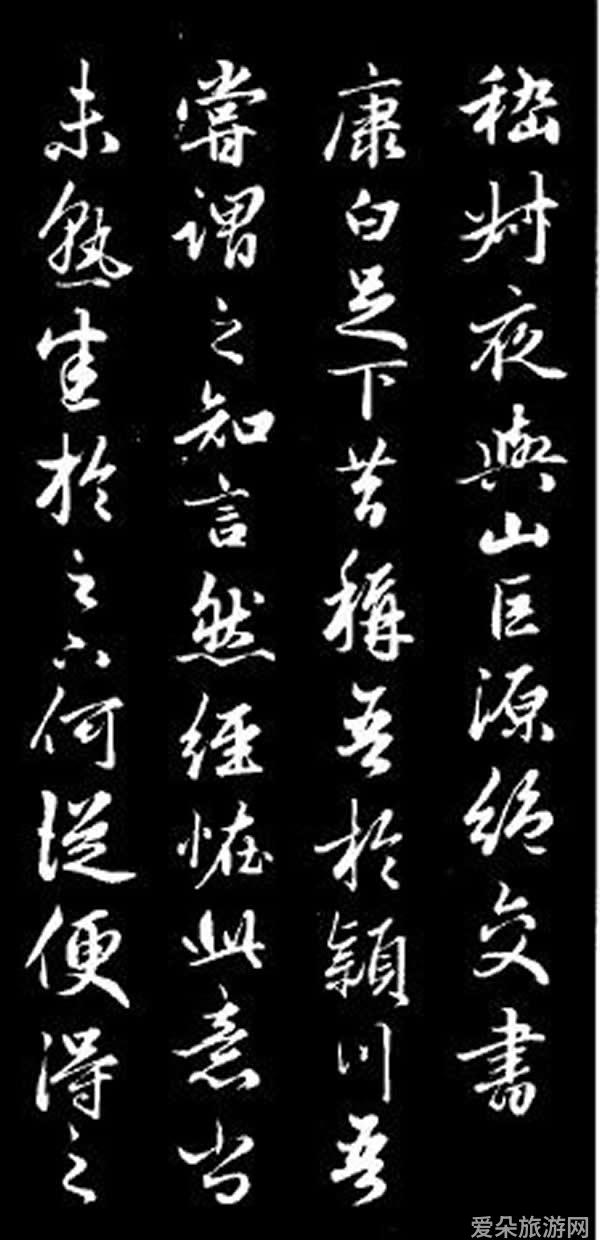 嵇叔夜與山巨源絕交書
康白足下昔稱吾於潁川吾
嘗謂之知言然經怪此意尚
未熟悉於足下何從便得之
爱朵旅游网